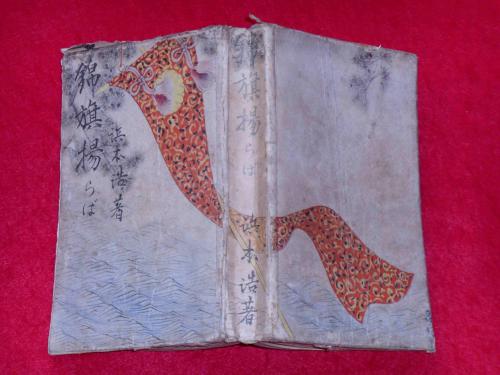 錦旗揚らば
浜本浩著
錦旗揚らば
浜本浩著